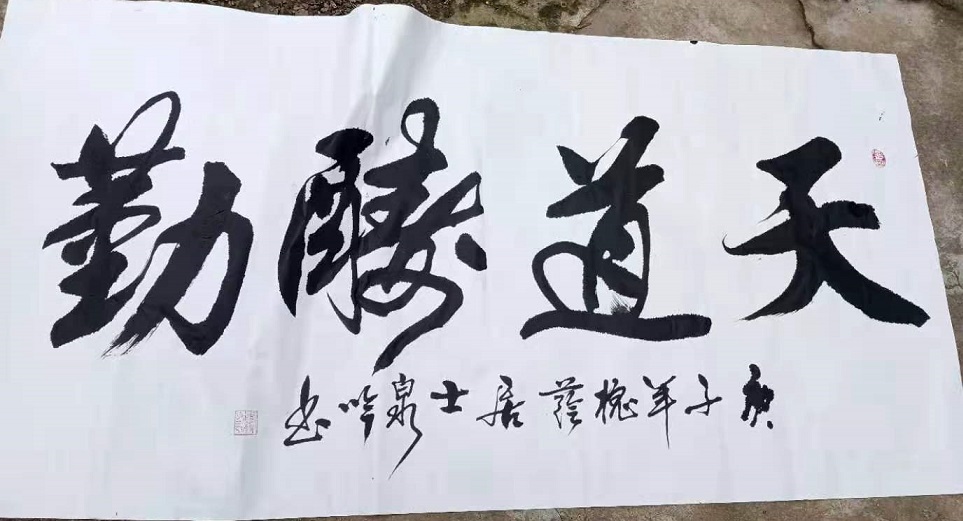 天道酬勤
庚子年槐荫居士泉吟书